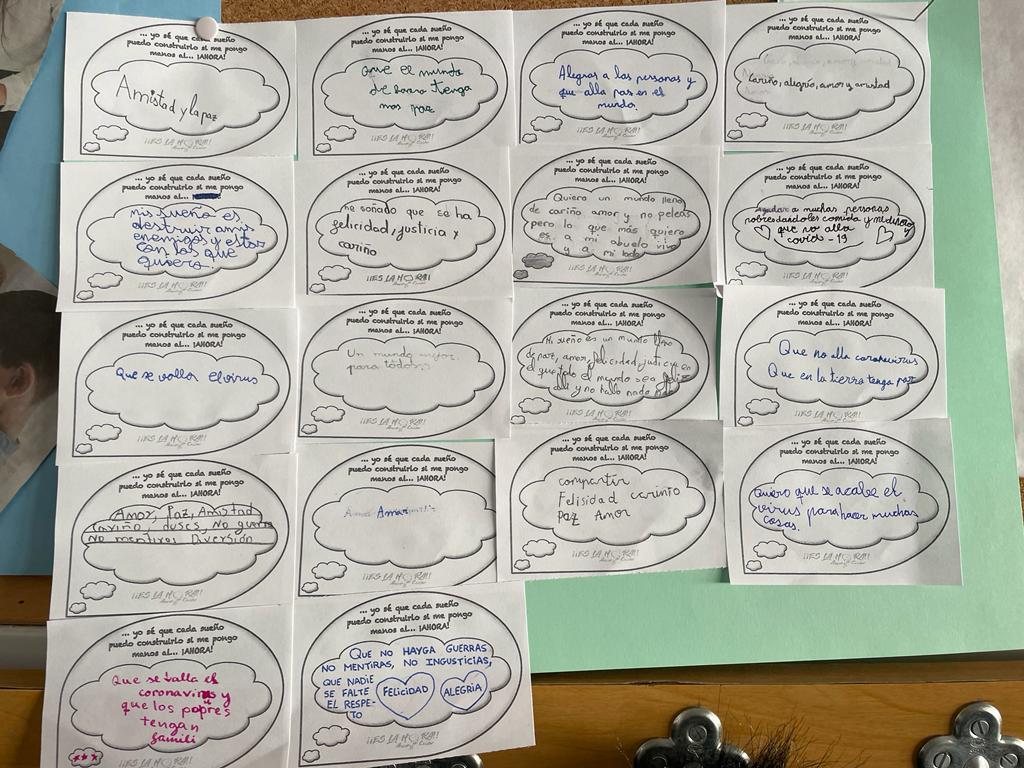 ... yo sé que cada sueño
puedo construirlo si me pongo
manos al... ¡AHORA!
Amistad y la paz
¡¡ES LA HORA!!
... yo sé que cada sueño
puedo construirlo si me pongo
manos al... ¡AHORA!
que el mundo
tenga
mas paz
¡¡ES LA HORA!!
... yo sé que cada sueño
puedo construirlo si me pongo
manos al... ¡AHORA!
Alegrar a las personas y
que alla pas en el
mundo.
¡¡ES LA HORA!!
... yo sé que cada sueño
puedo construirlo si me pongo
manos al... ¡AHORA!
Cariño, alegría, amor y amistad
¡¡ES LA HORA!!
... yo sé que cada sueño
puedo construirlo si me pongo
manos al...
mis sueño es
destruir a mis
enemigos y estar
con los que
quiero.
¡¡ES LA HORA!!
... yo sé que cada sueño
puedo construirlo si me pongo
manos al... ¡AHORA!
he soñado que se ha
felicidad, justicia y
cariño
¡¡ES LA HORA!!
... yo sé que cada sueño
puedo construirlo si me pongo
manos al... ¡AHORA!
Quiero un mundo lleno
de cariño amor y no peleas
pero lo que más quiero
es a mi abuelo vivo
y a mi lado
¡¡ES LA HORA!!
... yo sé que cada sueño
puedo construirlo si me pongo
manos al... ¡AHORA!
Ayudar a muchas personas
pobres dandoles comida y medicinas y
que no alla
covid-19
¡¡ES LA HORA!!
... yo sé que cada sueño
puedo construirlo si me pongo
manos al... ¡AHORA!
Que se valla el virus
¡¡ES LA HORA!!
... yo sé que cada sueño
puedo construirlo si me pongo
manos al... ¡AHORA!
Un mundo mejor
para todos
¡¡ES LA HORA!!
... yo sé que cada sueño
puedo construirlo si me pongo
manos al... ¡AHORA!
Mi sueño es un mundo lleno
de paz, amor, felicidad, justicia, en
el que todo el mundo sea feliz
y no falte nada
¡¡ES LA HORA!!
... yo sé que cada sueño
puedo construirlo si me pongo
manos al... ¡AHORA!
Que no alla coronavirus
Que en la tierra tenga paz
¡¡ES LA HORA!!
... yo sé que cada sueño
puedo construirlo si me pongo
manos al... ¡AHORA!
Amor, Paz, Amistad
Cariño, No guerra
No mentiras Diversión
¡¡ES LA HORA!!
... yo sé que cada sueño
puedo construirlo si me pongo
manos al... ¡AHORA!
Amar
¡¡ES LA HORA!!
... yo sé que cada sueño
puedo construirlo si me pongo
manos al... ¡AHORA!
compartir
Felisidad carinto
Paz Amor
¡¡ES LA HORA!!
... yo sé que cada sueño
puedo construirlo si me pongo
manos al... ¡AHORA!
Quiero que se acabe el
virus para hacer muchas
cosas.
¡¡ES LA HORA!!
... yo sé que cada sueño
puedo construirlo si me pongo
manos al... ¡AHORA!
Que se valla el
coronavirus y
que los pobres
tengan
famili
¡¡ES LA HORA!!
... yo sé que cada sueño
puedo construirlo si me pongo
manos al... ¡AHORA!
QUE NO HAYGA GUERRAS
NO MENTIRAS, NO INGUSTICIAS,
QUE NADIE
SE FALTE
EL RESPE-
TO
FELICIDAD
ALEGRIA
¡¡ES LA HORA!!